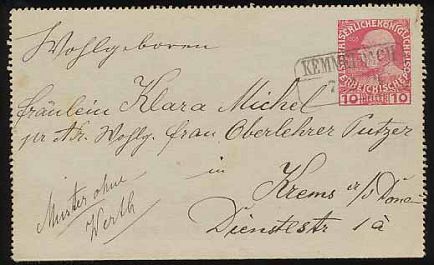 Wohlgeboren
KAISERLICHE KÖNIGLICHE
ÖSTERREICHISCHE
KEMMELBACH
10 HELLER 10
Fräulein Klara Michel
pr Adr. Wohlg. Frau Oberlehrer Putzer
in
Krems a/d Donau
Dienstlestr 1a
Muster ohne
Werth